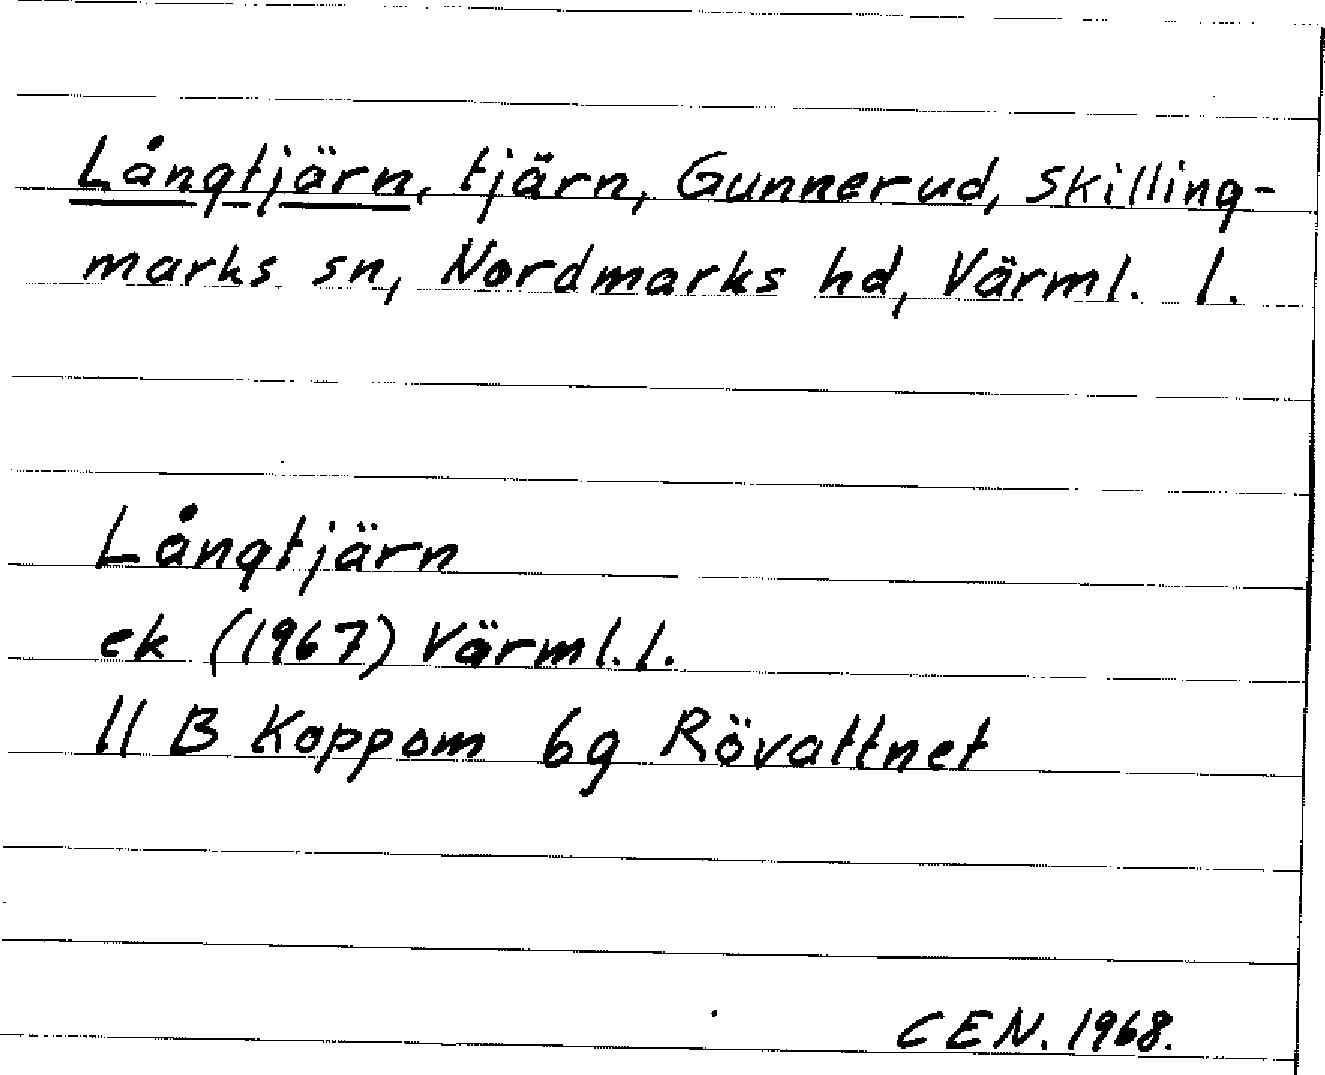 Långtjärn, tjärn, Gunnerud, Skilling-
marks sn, Nordmarks hd, Värml. l.
Långtjärn
ek (1967) Värml. l.
11 B Koppom 6g Rövattnet
CEN. 1968.